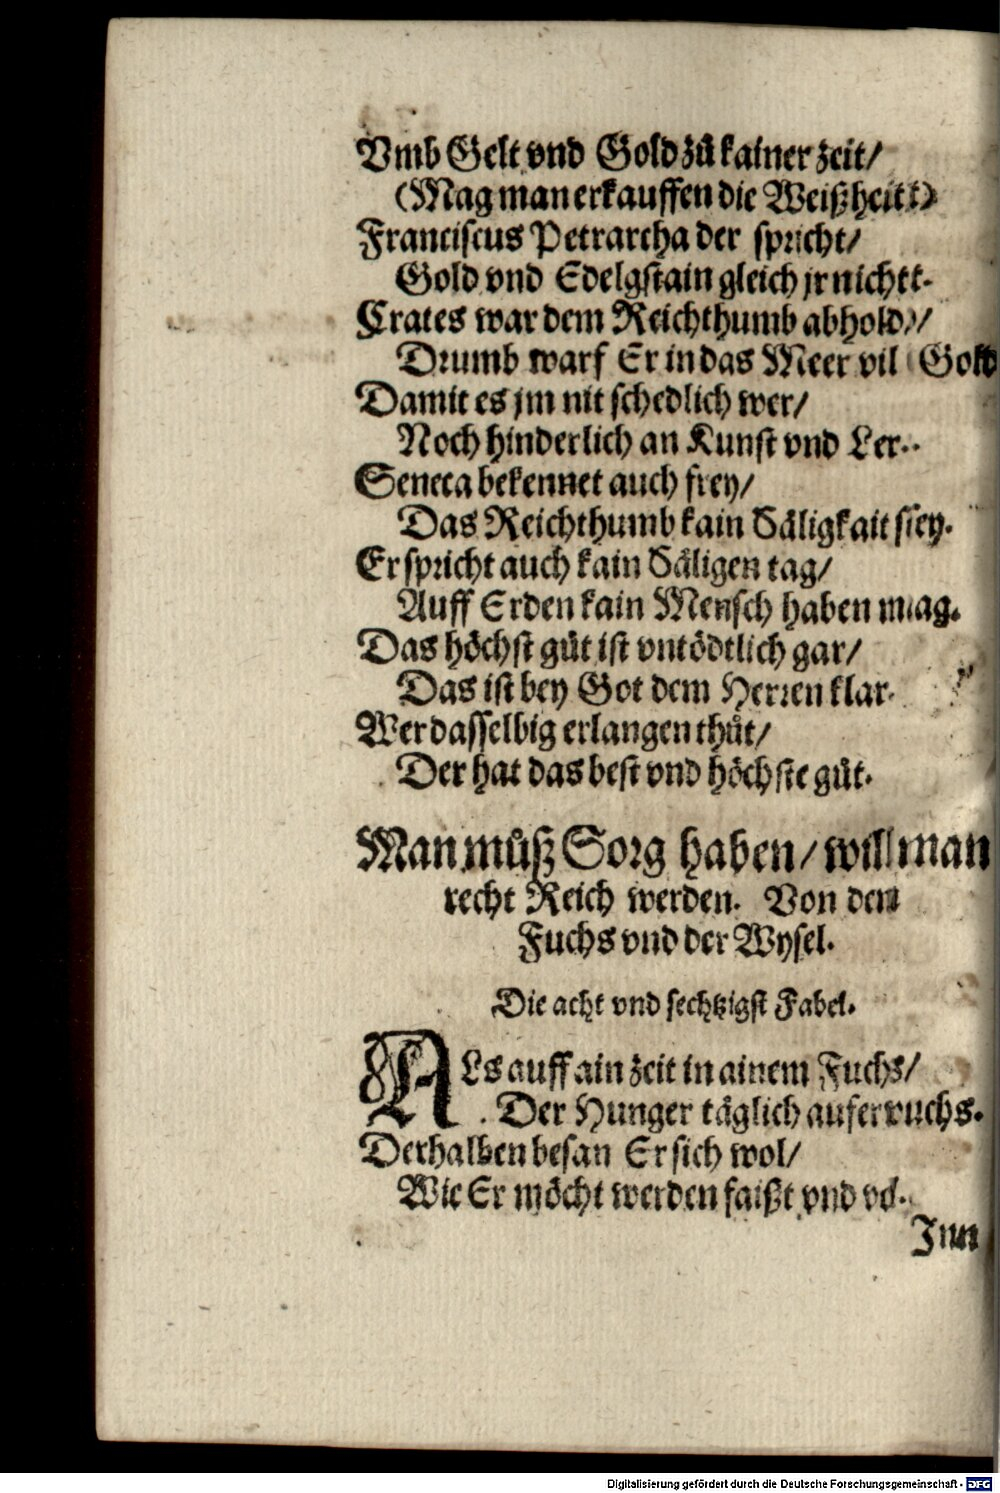 Vmb Gelt vnd Gold zů kainer zeit/
(Mag man erkauffen die Weißheit)
Franciscus Petrarcha der spricht/
Gold vnd Edelgstain gleich jr nicht.
Crates war dem Reichthumb abhold/
Drumb warf Er in das Meer vil Gold
Damit es jm nit schedlich wer/
Noch hinderlich an Kunst vnd Ler.
Seneca bekennet auch frey/
Das Reichthumb kain Säligkait sey.
Er spricht auch kain Säligen tag/
Auff Erden kain Mensch haben mag.
Das höchst gůt ist vntödtlich gar/
Das ist bey Got dem Herren klar.
Wer dasselbig erlangen thůt/
Der hat das best vnd höchste gůt.
Man můß Sorg haben/ will man
recht Reich werden. Von dem
Fuchs vnd der Wysel.
Die acht vnd sechtzigst Fabel.
ALs auff ain zeit in ainem Fuchs/
Der Hunger täglich auferwuchs.
Derhalben besan Er sich wol/
Wie Er möcht werden faißt vnd vol.
Inn
Digitalisierung gefördert durch die Deutsche Forschungsgemeinschaft - DFG